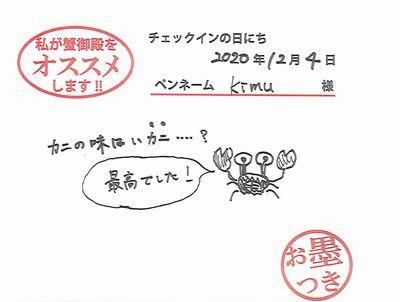 私が蟹御殿を
オススメ
します!!
チェックインの日にち
2020年12月4日
ペンネーム kimu 様
カニの味はいカニ‥‥?
最高でした!
お墨
つき